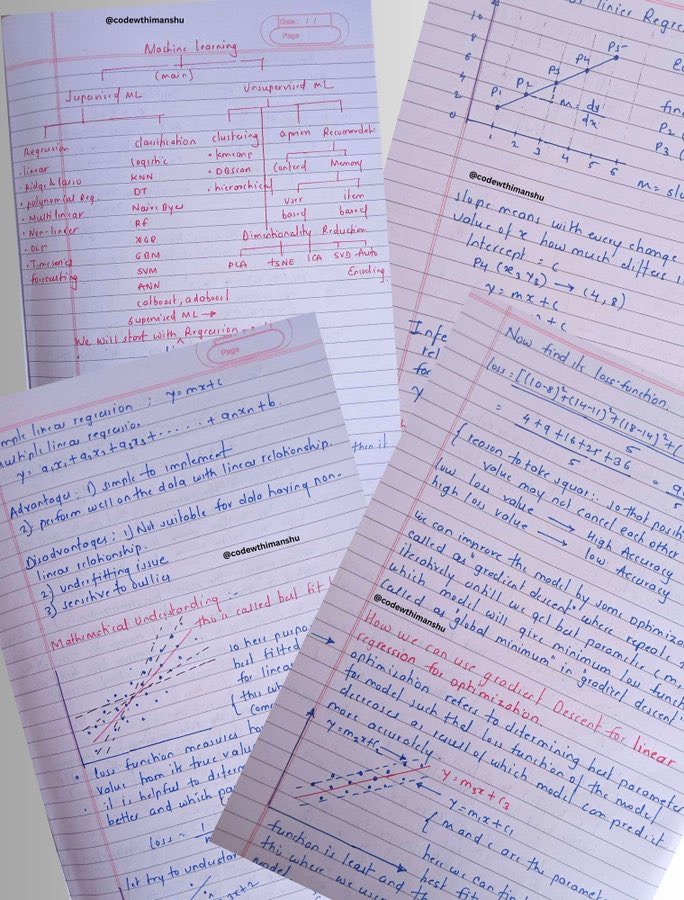 @codewthimanshu
Date: / /
Page
Machine learning
(main)
Supervised ML
Unsupervised ML
Regression
• linear
• Ridge & lasso
• polynomial Reg.
• Multi linear
• Non-linear
• OLS
• Time series
forecasting
classification
logistic
KNN
DT
Naive Byes
Rf
XGB
GBM
SVM
ANN
catboost, adaboost
supervised ML →
clustering
• kmeans
• DBscan
• hierarchical
apriori
Content
Memory
user based
item based
Dimentionality Reduction
PCA tSNE ICA SVD Auto
Encoding
We will start with Regression
linier Regre
10
8
6
4
2
0
P1 P2 P3 P4 P5
m = dy/dx
1 2 3 4 5 6
P2 (
P3 (
@codewthimanshu
slope means with every change
value of x how much differs
Intercept = c
P4 (x3 y3) → (4, 8)
y = mx + c
+ c
rel
for
y
Page
simple linear regression : y = mx + c
multiple linear regression
y = a1x1 + a2x2 + a3x3 + ..... + anxn + b
Advantages : 1) simple to implement
2) perform well on the data with linear relationship.
Disadvantages : 1) Not suitable for data having non-
linear relationship.
2) underfitting issue
3) sensitive to outlier
@codewthimanshu
Mathematical Understanding :-
this is called best fit
so here purpo
best fitted
for linear
{ this
• loss function measures
value from its true valu
• it is helpful to deter
better and which pa
loss = 1
let try to understan
Now find its loss function.
loss = [(10-8)²+(14-11)²+(18-14)²+(
5
= 4+9+16+25+36
5
{ reason to take squar:- so that posit
value may not cancel each other
low loss value → High Accuracy
high loss value → low Accuracy
we can improve the model by some optimiza
called as "gradient descent" where repeats
iteratively untill we get best parameter (m,
which model will give minimum loss funct
called as "global minimum" in "gradient descent"
@codewthimanshu
How we can use gradient Descent for linear
regression for optimization
optimization refers to determining best parameter
for model such that loss function of the model
decreases as result of which model can predict
more accurately.
y = m2x + c2
y = m3x + c3
y = m1x + c1
{ m and c are the paramet
here we can find
best fit
function is least and th
this where we use
model